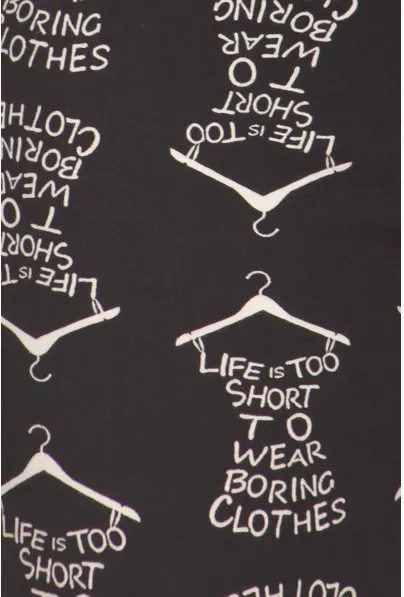 BORING
CLOTHES
LIFE IS TOO
SHORT
TO
WEAR
BORING
LIFE IS
SHORT
TO
WEAR
BORING
CLOTHE
LIFE IS TOO
SHORT
TO
WEAR
BORING
CLOTHES
LIFE IS TOO
SHORT